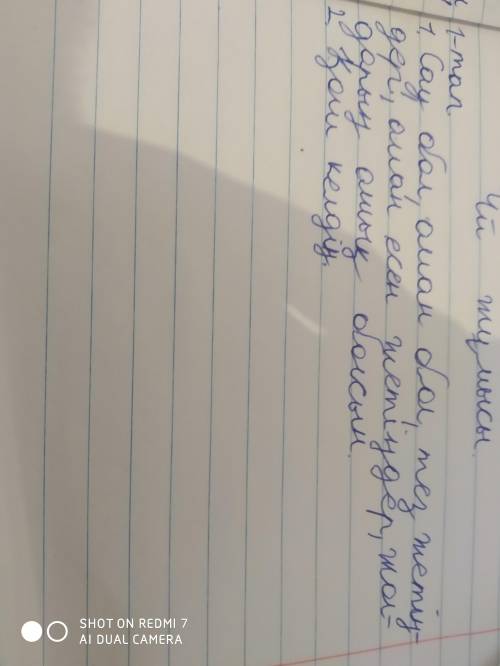 Үй жұмысы.
1-тап
1. Сау бол, аман бол, тез жетің-
дер, аман есен жетіңдер, жол-
дарың ашық болсын.
2. Қош келдің.
SHOT ON REDMI 7
AI DUAL CAMERA